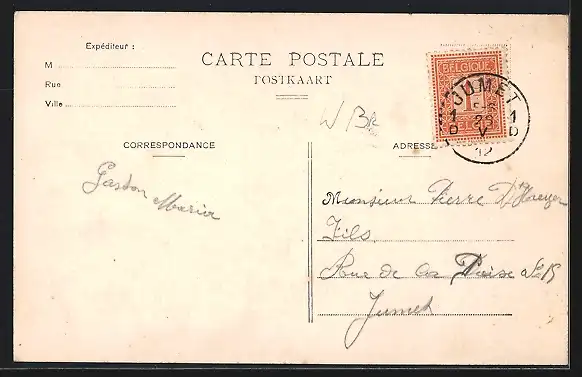 Expéditeur :
M
Rue
Ville
CARTE POSTALE
POSTKAART
W Br
BELGIQUE
1
JUMET
1 23 1
D V D
12
CORRESPONDANCE
ADRESSE
Gaston Maria
Monsieur Pierre D'Haeyer
Fils
Rue de la
Jumet